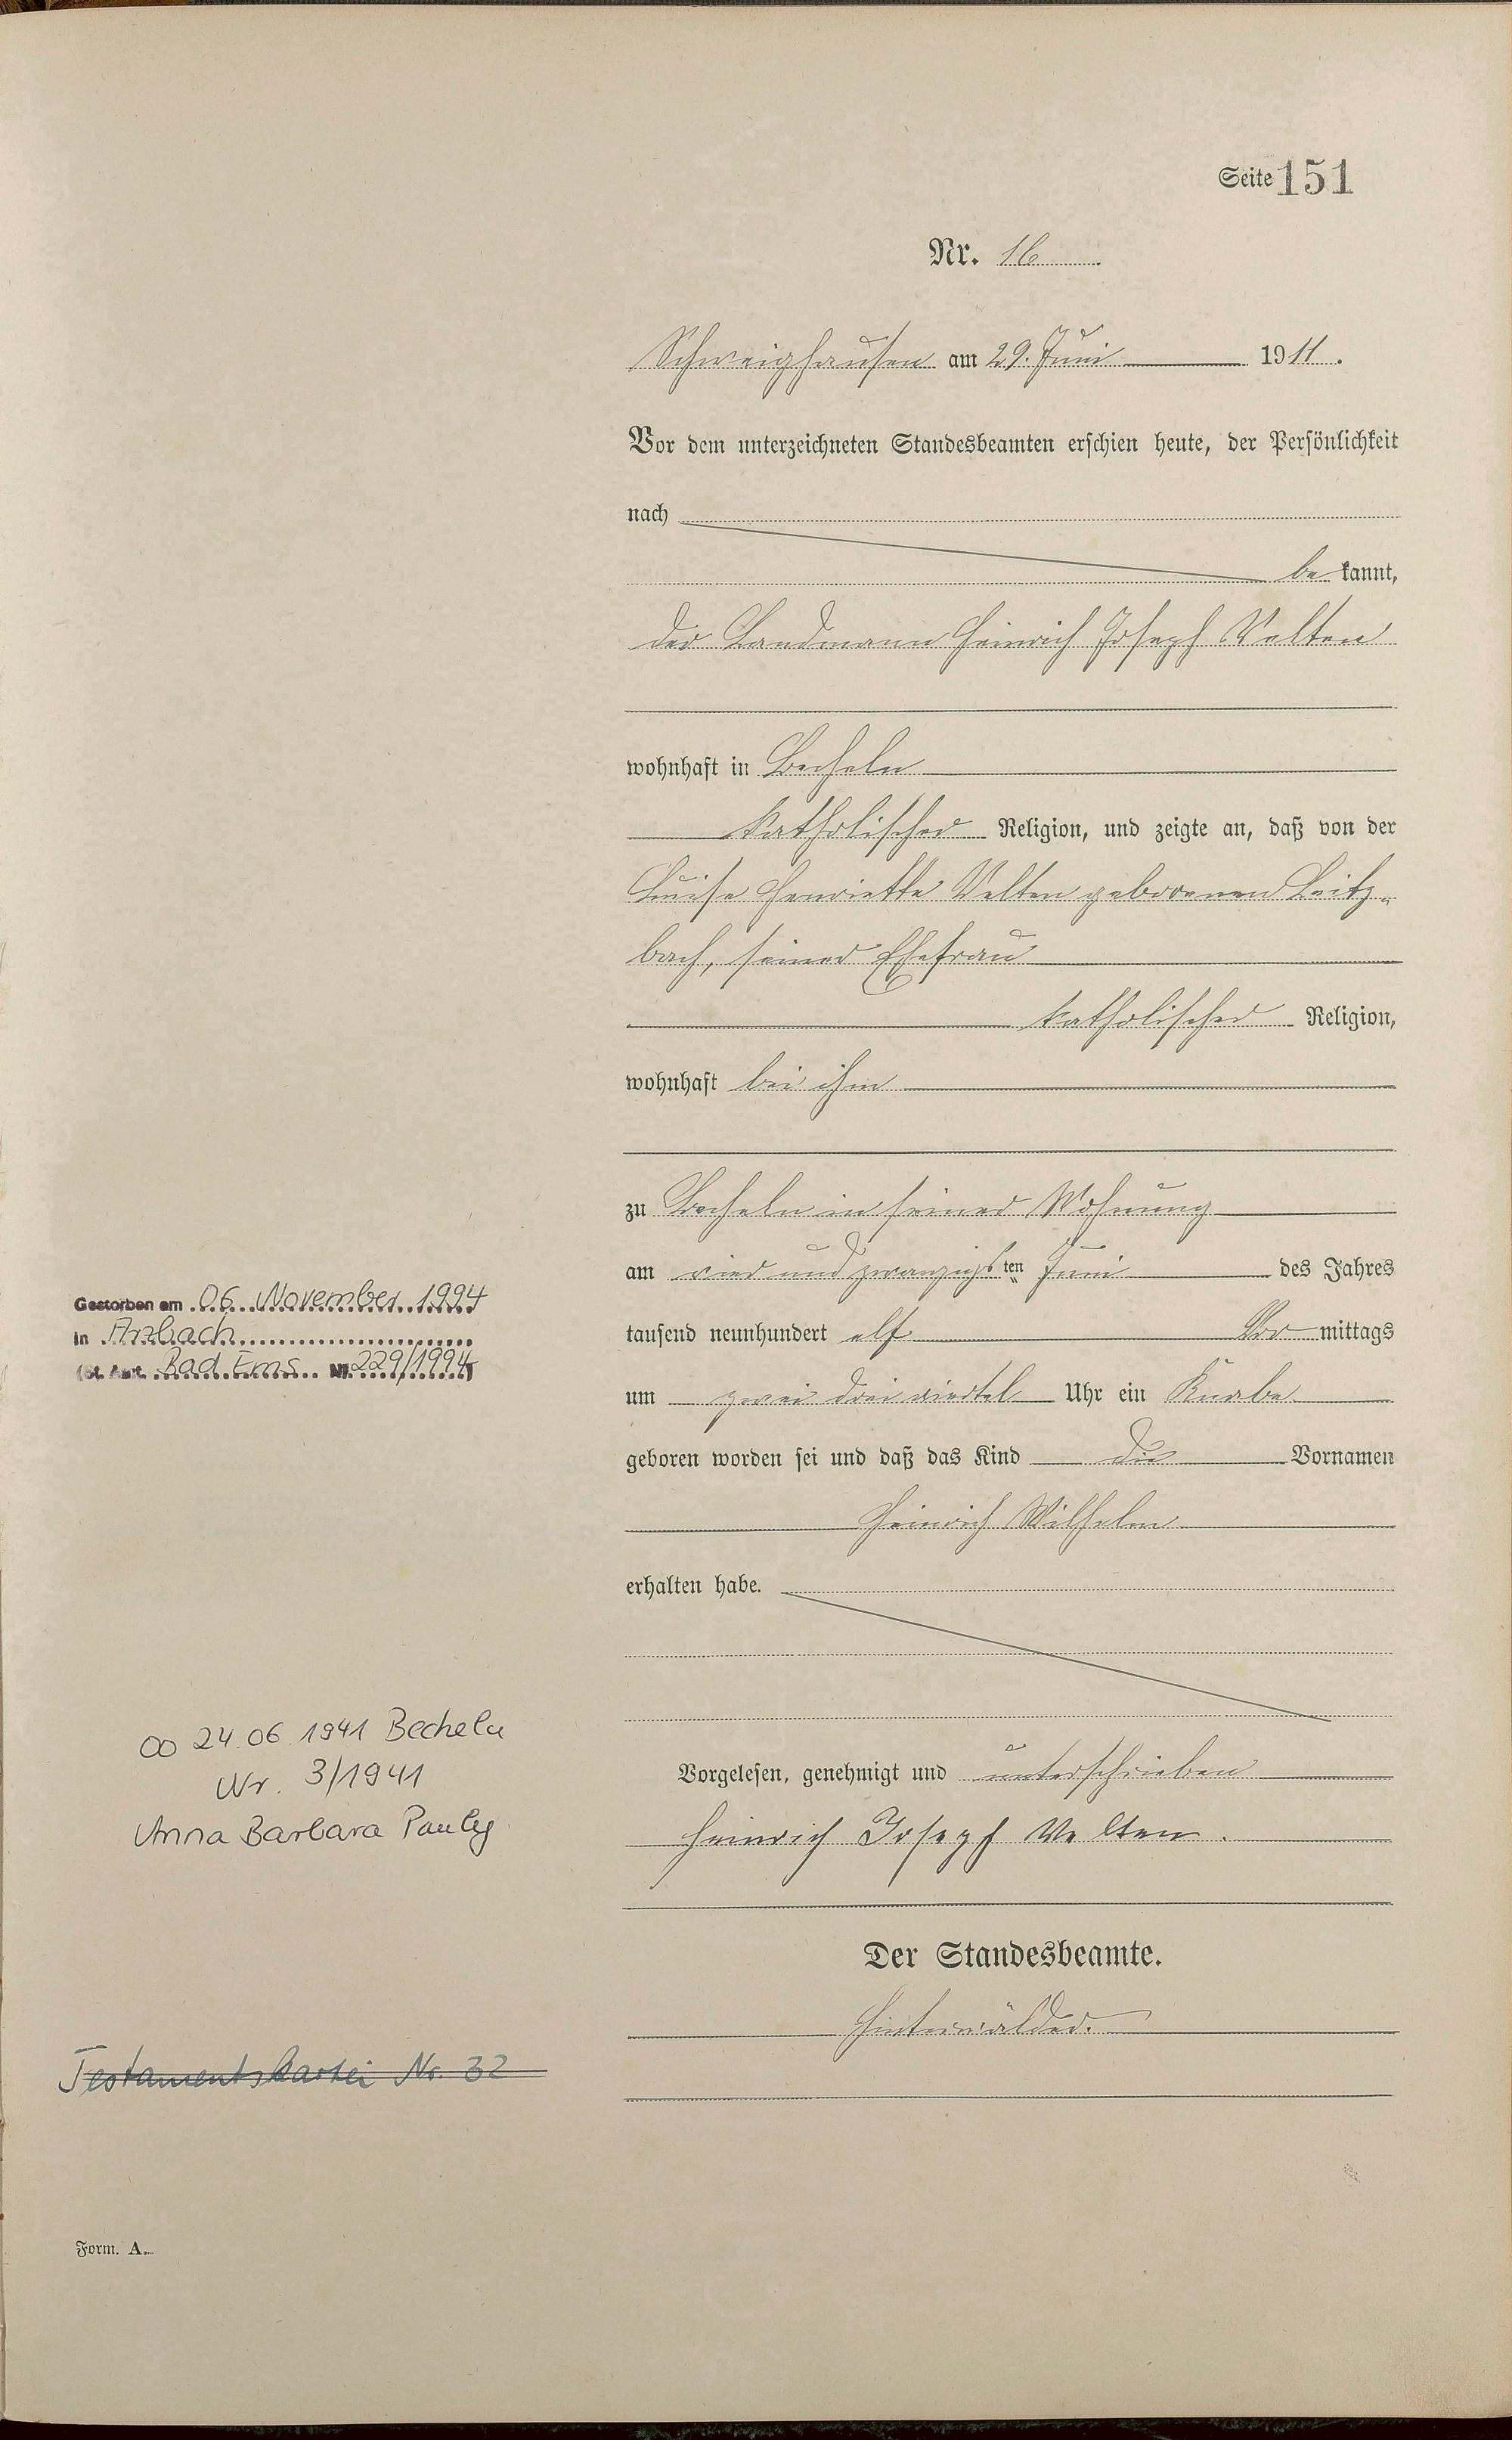 Seite 151
Nr. 16
Schweighausen am 29. Juni 1911.
Vor dem unterzeichneten Standesbeamten erschien heute, der Persönlichkeit
nach
be kannt,
der Landmann Heinrich Joseph Velten
wohnhaft in Becheln
katholischer Religion, und zeigte an, daß von der
Luise Henriette Velten geborenen Leitz-
bach, seiner Ehefrau
katholischer Religion,
wohnhaft bei ihm
zu Becheln in seiner Wohnung
am vier und zwanzigsten Juni des Jahres
tausend neunhundert elf Vor mittags
um zwei drei viertel Uhr ein Knabe
geboren worden sei und daß das Kind die Vornamen
Heinrich Wilhelm
erhalten habe.
Vorgelesen, genehmigt und unterschrieben
Heinrich Joseph Velten.
Der Standesbeamte.
Hinterwälder.
Gestorben am 06. November 1994
in Arzbach
(St. Amt. Bad Ems Nr. 229/1994)
∞ 24.06.1941 Becheln
Nr. 3/1941
Anna Barbara Pauly
Testamentskartei Nr. 32
Form. A.